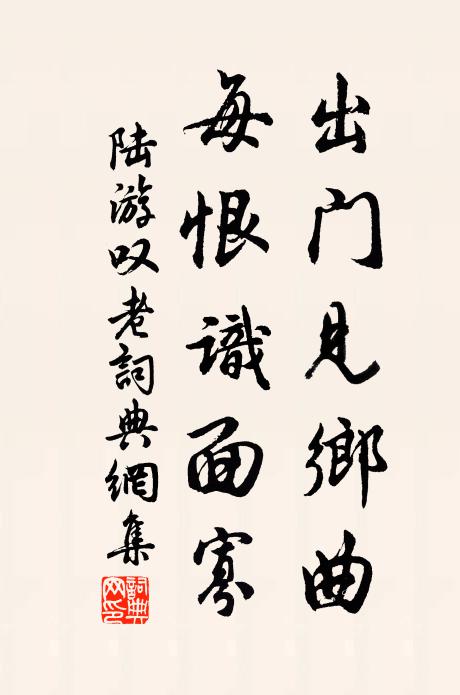 出门见鄉曲
每恨識面寡
陆游叹老詞典網集
詞典网印